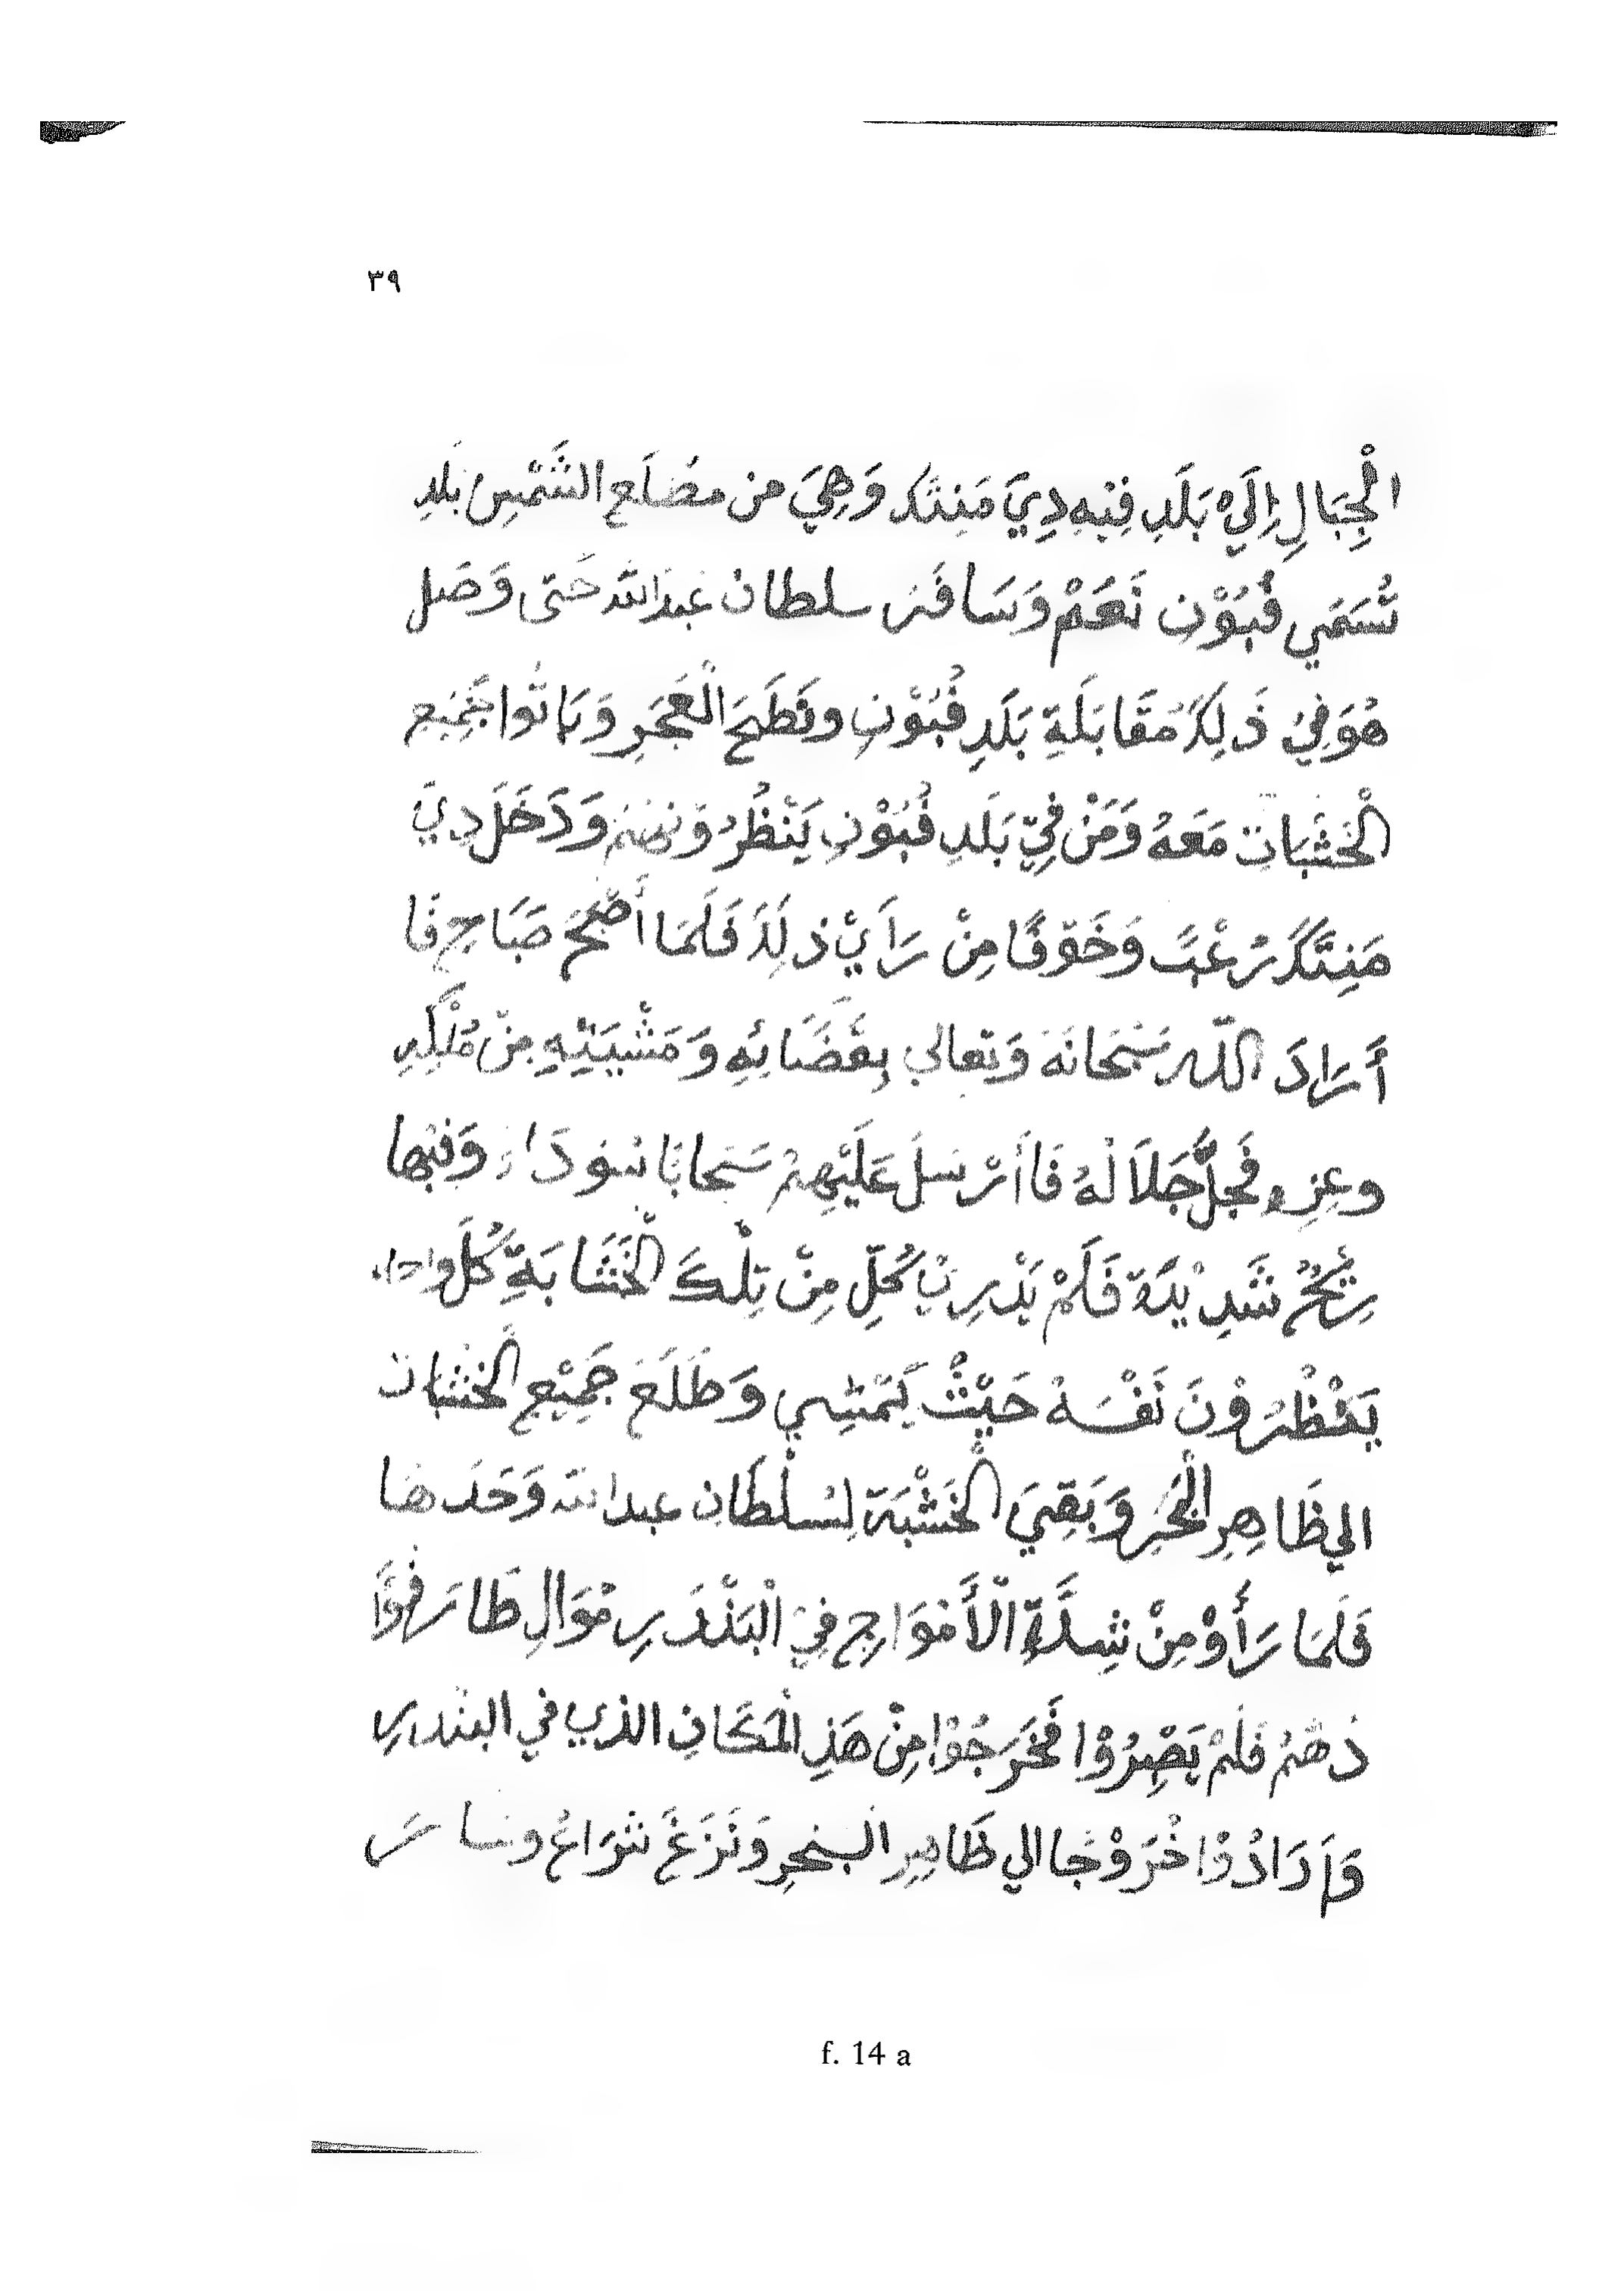 ٣٩
الْجِبَالِ إِلَيْ بَلَدِ فِيْهِ دِيَ مَنِتَكَ وَهِيَ من مضلَع الشَّمْسِ بَلَدِ
تُسَمَي فُبُوْنِ نَعَمْ وَسَافَرَ سلطان عبد الله حَتى وَصَل
هُوَ فِيْ ذَلِكَ مُقَابَلَةِ بَلَدِ فُبُوْنِ وتَطَحَ الْعَجَرِ وَبَاتُوا جَمِيع
الْخَشَبَاتِ مَعَهُ وَمَنْ فِيْ بَلَدِ فُبُوْنِ يَنْظُرُوْنهُمْ وَدَخَلَ دِيَ
مَنِتَكَ رُعْبً وَخَوْفًا مِنْ رَايْ ذلِكَ فَلَمَا أَصْبَحَ صَبَاحِ فَا
أَرَادَ اللّه سَبْحَانَهُ وَتعالي بِقَضَائِهِ وَمَشْيَتِهِ مِنْ مُلْكِهِ
وعِزِهِ فَجلَّ جَلَالُهُ فَاأَرْسَلَ عَلَيْهِمْ سَحَابًا سَوْدَاءَ وَفيْها
رِيْحُ شَدِيْدَةَ فَلَمْ يَدْرِيْ كُلِّ مِنْ تِلْكَ الْخَشَابَةِ كُل واحدا
يَنْظُرُوْنَ نَفْسَهُ حَيْثُ يَمْشِي وَطَلَعَ جَمِيْعِ الْخشَبَات
الي ظَاهِرِ الْبَحْرِ وَبَقِيَ الْخَشْبَة لِسُلْطَانِ عبد الله وَحَدهَا
فَلَمَا رَأَوْ مِنْ شِدَّةِ الْأَمْوَاجِ فِيْ الْبَنْدَرِ مُوَالِ طَارَ فُؤَا
ذهُمْ فَلَمْ يَصْبِرُوْا فَخَرَجُوْا مِنْ هَذِ الْمَكَانِ الذي في البنْدر
وَإِرَادُوْا خُرَوْجًا الي ظَاهِرِ البحرِ وَنَزَعَ شَرَاعُ وسَارَ
f. 14 a